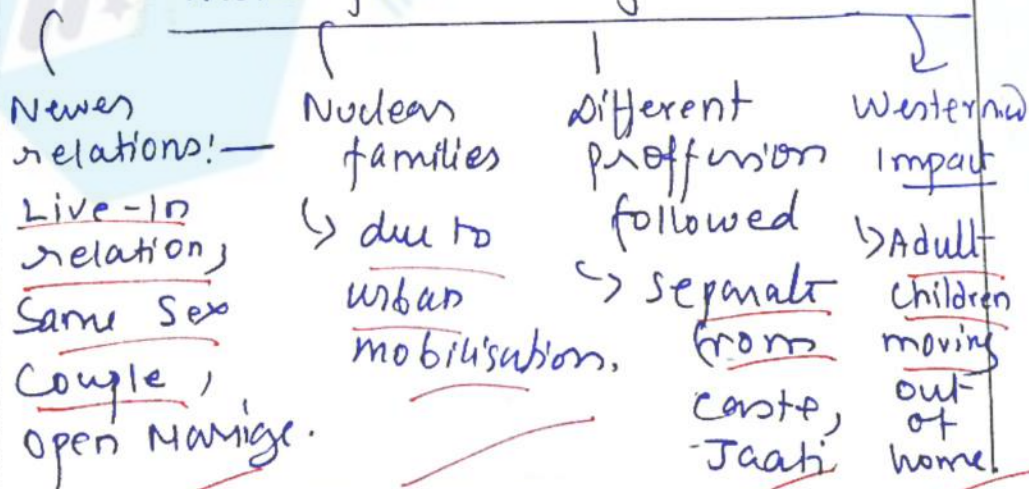 Newer
relations:—
Live-In
relation,
Same Sex
Couple,
Open Marrige.
Nuclear
families
↳ due to
urban
mobilisation.
Different
proffession
followed
↳ separate
from
caste,
Jaati
Westernised
Impact
↳ Adult
children
moving
out
of
home.